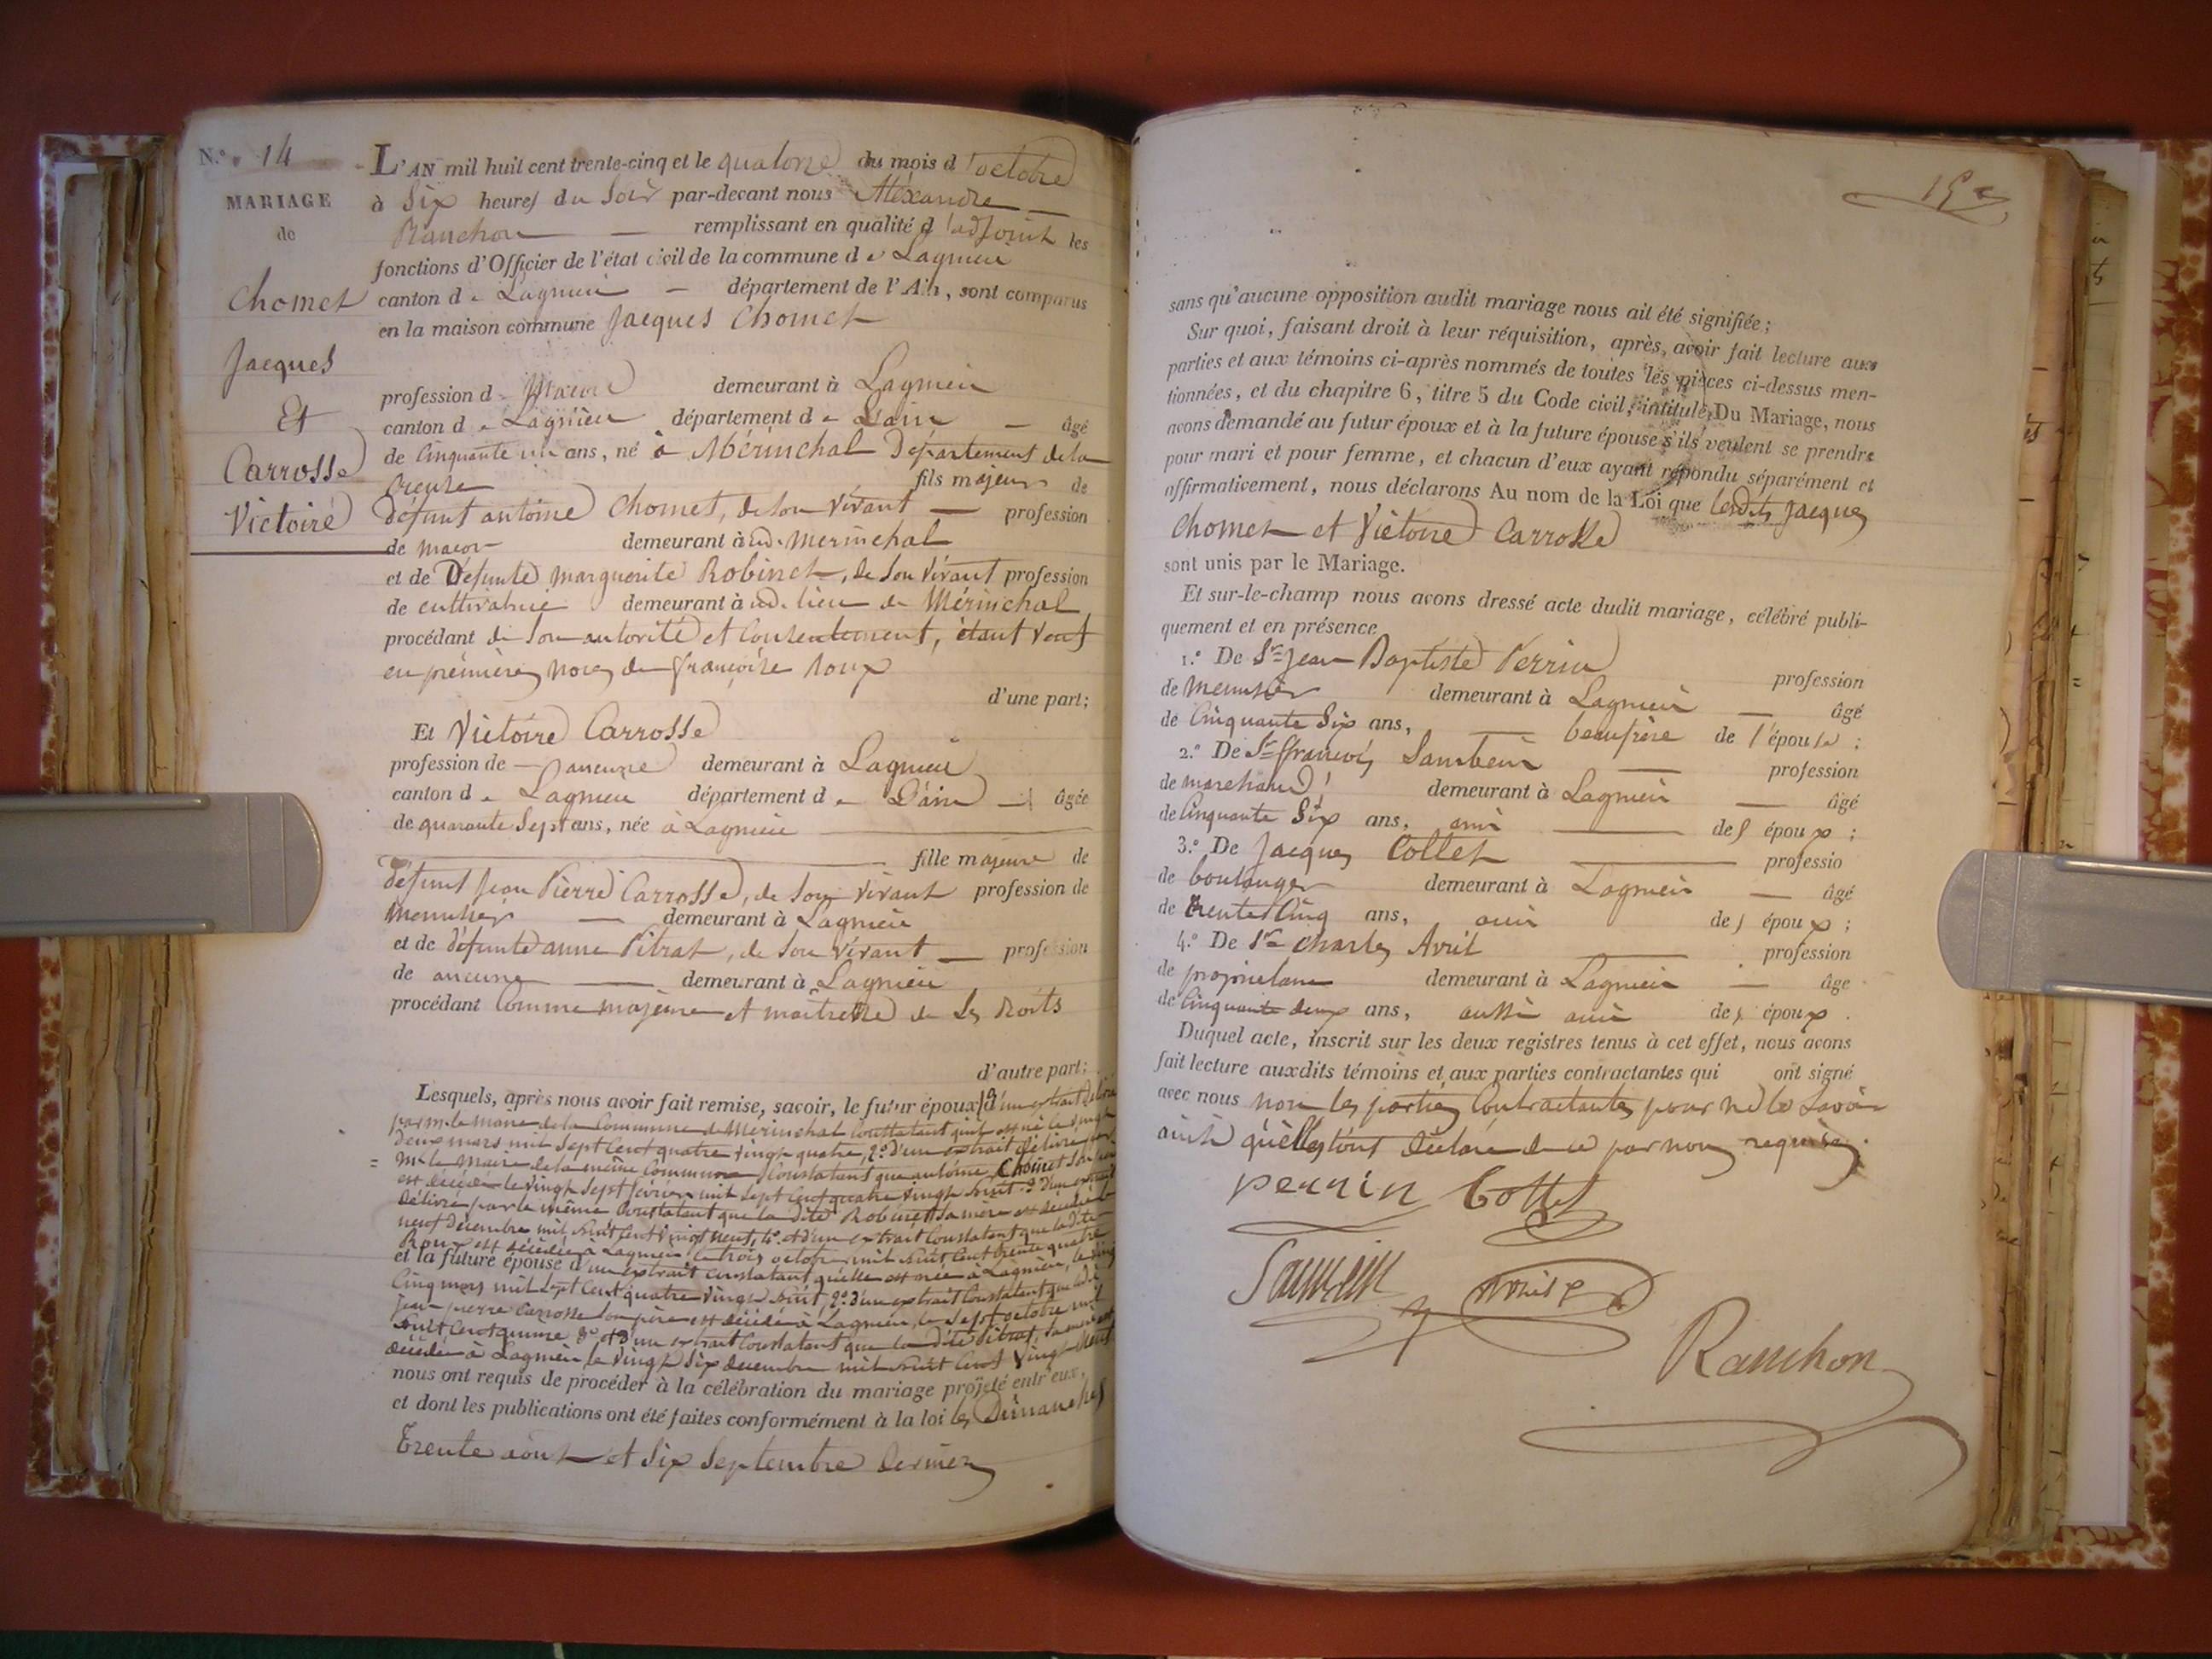 N.º 14
MARIAGE
de
Chomet
Jacques
Et
Carrosse
Victoire
L'AN mil huit cent trente-cinq et le quatorze du mois d'octobre
à Six heures du Soir par-devant nous Aléxandre
Ranchon remplissant en qualité d'adjoint les
fonctions d'Officier de l'état civil de la commune de Lagnieu
canton de Lagnieu département de l'Ain, sont comparus
en la maison commune Jacques Chomet
profession de Macon demeurant à Lagnieu
canton de Lagnieu département de L'ain âgé
de Cinquante un ans, né à Mérinchal Département de la
Creuse fils majeur de
défunt antoine Chomet, de son vivant profession
de macon demeurant à ud. Merinchal
et de Defunte marguerite Robinet, de son vivant profession
de cultivatrice demeurant à ud. lieu de Mérinchal
procédant de son autorité et Consentement, étant veuf
en premières noces de françoise Roux
d'une part;
Et Victoire Carrosse
profession de aucune demeurant à Lagnieu
canton de Lagnieu département de L'ain âgée
de quarante Sept ans, née à Lagnieu
fille majeure de
défunt Jean Pierre Carrosse, de son vivant profession de
Menuisier demeurant à Lagnieu
et de défunte anne Pitrat, de son vivant profession
de aucune demeurant à Lagnieu
procédant Comme majeure et maitresse de ses droits
d'autre part;
Lesquels, après nous avoir fait remise, savoir, le futur époux 1º d'un extrait délivré
par m. le maire de la Commune de Merinchal Constatant qu'il est né le vingt
deux mars mil sept Cent quatre vingt quatre, 2º d'un extrait délivré par
Mr. le Maire de la même Commune Constatant que antoine Chomet son père
est décédé le vingt sept février mil sept Cent quatre vingt huit 3º d'un extrait
délivré par le même Constatant que la dite Robinet sa mère est décédée le
neuf décembre mil huit Cent vingt neuf, 4º et d'un extrait Constatant que la dite
Roux est décédée à Lagnieu le trois octobre mil huit Cent trente quatre
et la future épouse d'un extrait Constatant qu'elle est née à Lagnieu, le vingt
Cinq mars mil sept Cent quatre vingt huit 2º d'un extrait Constatant que le dit
jean pierre Carrosse son père est décédé à Lagnieu, le sept octobre mil
huit Cent quinze 3º et d'un extrait Constatant que la dite Pitrat, sa mère est
décédée à Lagnieu le vingt Six decembre mil huit Cent vingt neuf
nous ont requis de procéder à la célébration du mariage projeté entr'eux,
et dont les publications ont été faites conformément à la loi les Dimanches
Trente aout et Six Septembre dernier
sans qu'aucune opposition audit mariage nous ait été signifiée;
Sur quoi, faisant droit à leur réquisition, après, avoir fait lecture aux
parties et aux témoins ci-après nommés de toutes les pièces ci-dessus men-
tionnées, et du chapitre 6, titre 5 du Code civil, intitulé, Du Mariage, nous
avons demandé au futur époux et à la future épouse s'ils veulent se prendre
pour mari et pour femme, et chacun d'eux ayant répondu séparément et
affirmativement, nous déclarons Au nom de la Loi que lesdits Jacques
Chomet et Victoire Carrosse
sont unis par le Mariage.
Et sur-le-champ nous avons dressé acte dudit mariage, célébré publi-
quement et en présence
1.º De Sr Jean Baptiste Perrin profession
de Menuisier demeurant à Lagnieu âgé
de Cinquante Six ans, beaufrère de l'épouse;
2.º De Sr françois profession
de marchand demeurant à Lagnieu âgé
de Cinquante Six ans, ami des époux;
3.º De Jacques Collet professio
de boulanger demeurant à Lagnieu âgé
de trente Cinq ans, ami des époux;
4.º De Sr Charles Avril profession
de propriétaire demeurant à Lagnieu âgé
de Cinquante deux ans, aussi ami des époux.
Duquel acte, inscrit sur les deux registres tenus à cet effet, nous avons
fait lecture auxdits témoins et aux parties contractantes qui ont signé
avec nous non les parties Contractantes pour ne le Savoir
ainsi qu'elles l'ont déclaré de ce par nous requises.
perrin Collet
Ranchon